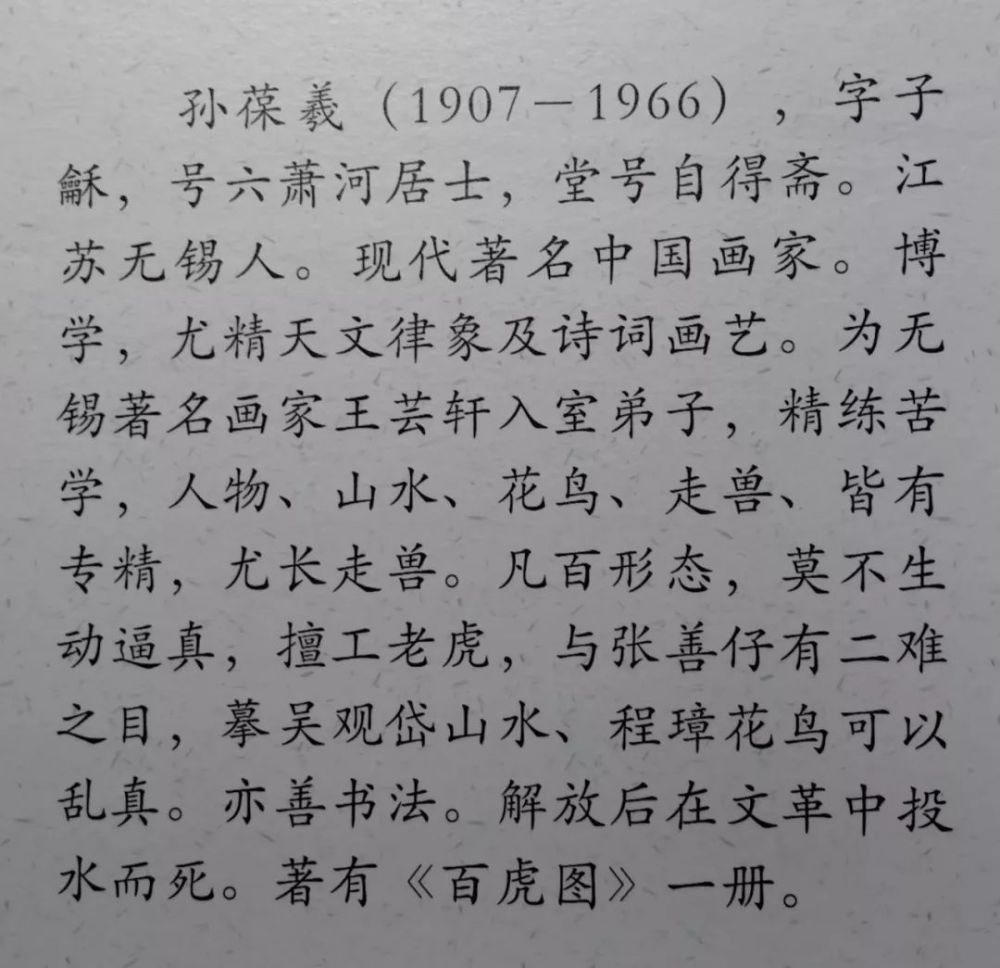 孙葆羲（1907－1966），字子
龢，号六萧河居士，堂号自得斋。江
苏无锡人。现代著名中国画家。博
学，尤精天文律象及诗词画艺。为无
锡著名画家王芸轩入室弟子，精练苦
学，人物、山水、花鸟、走兽、皆有
专精，尤长走兽。凡百形态，莫不生
动逼真，擅工老虎，与张善仔有二难
之目，摹吴观岱山水、程璋花鸟可以
乱真。亦善书法。解放后在文革中投
水而死。著有《百虎图》一册。